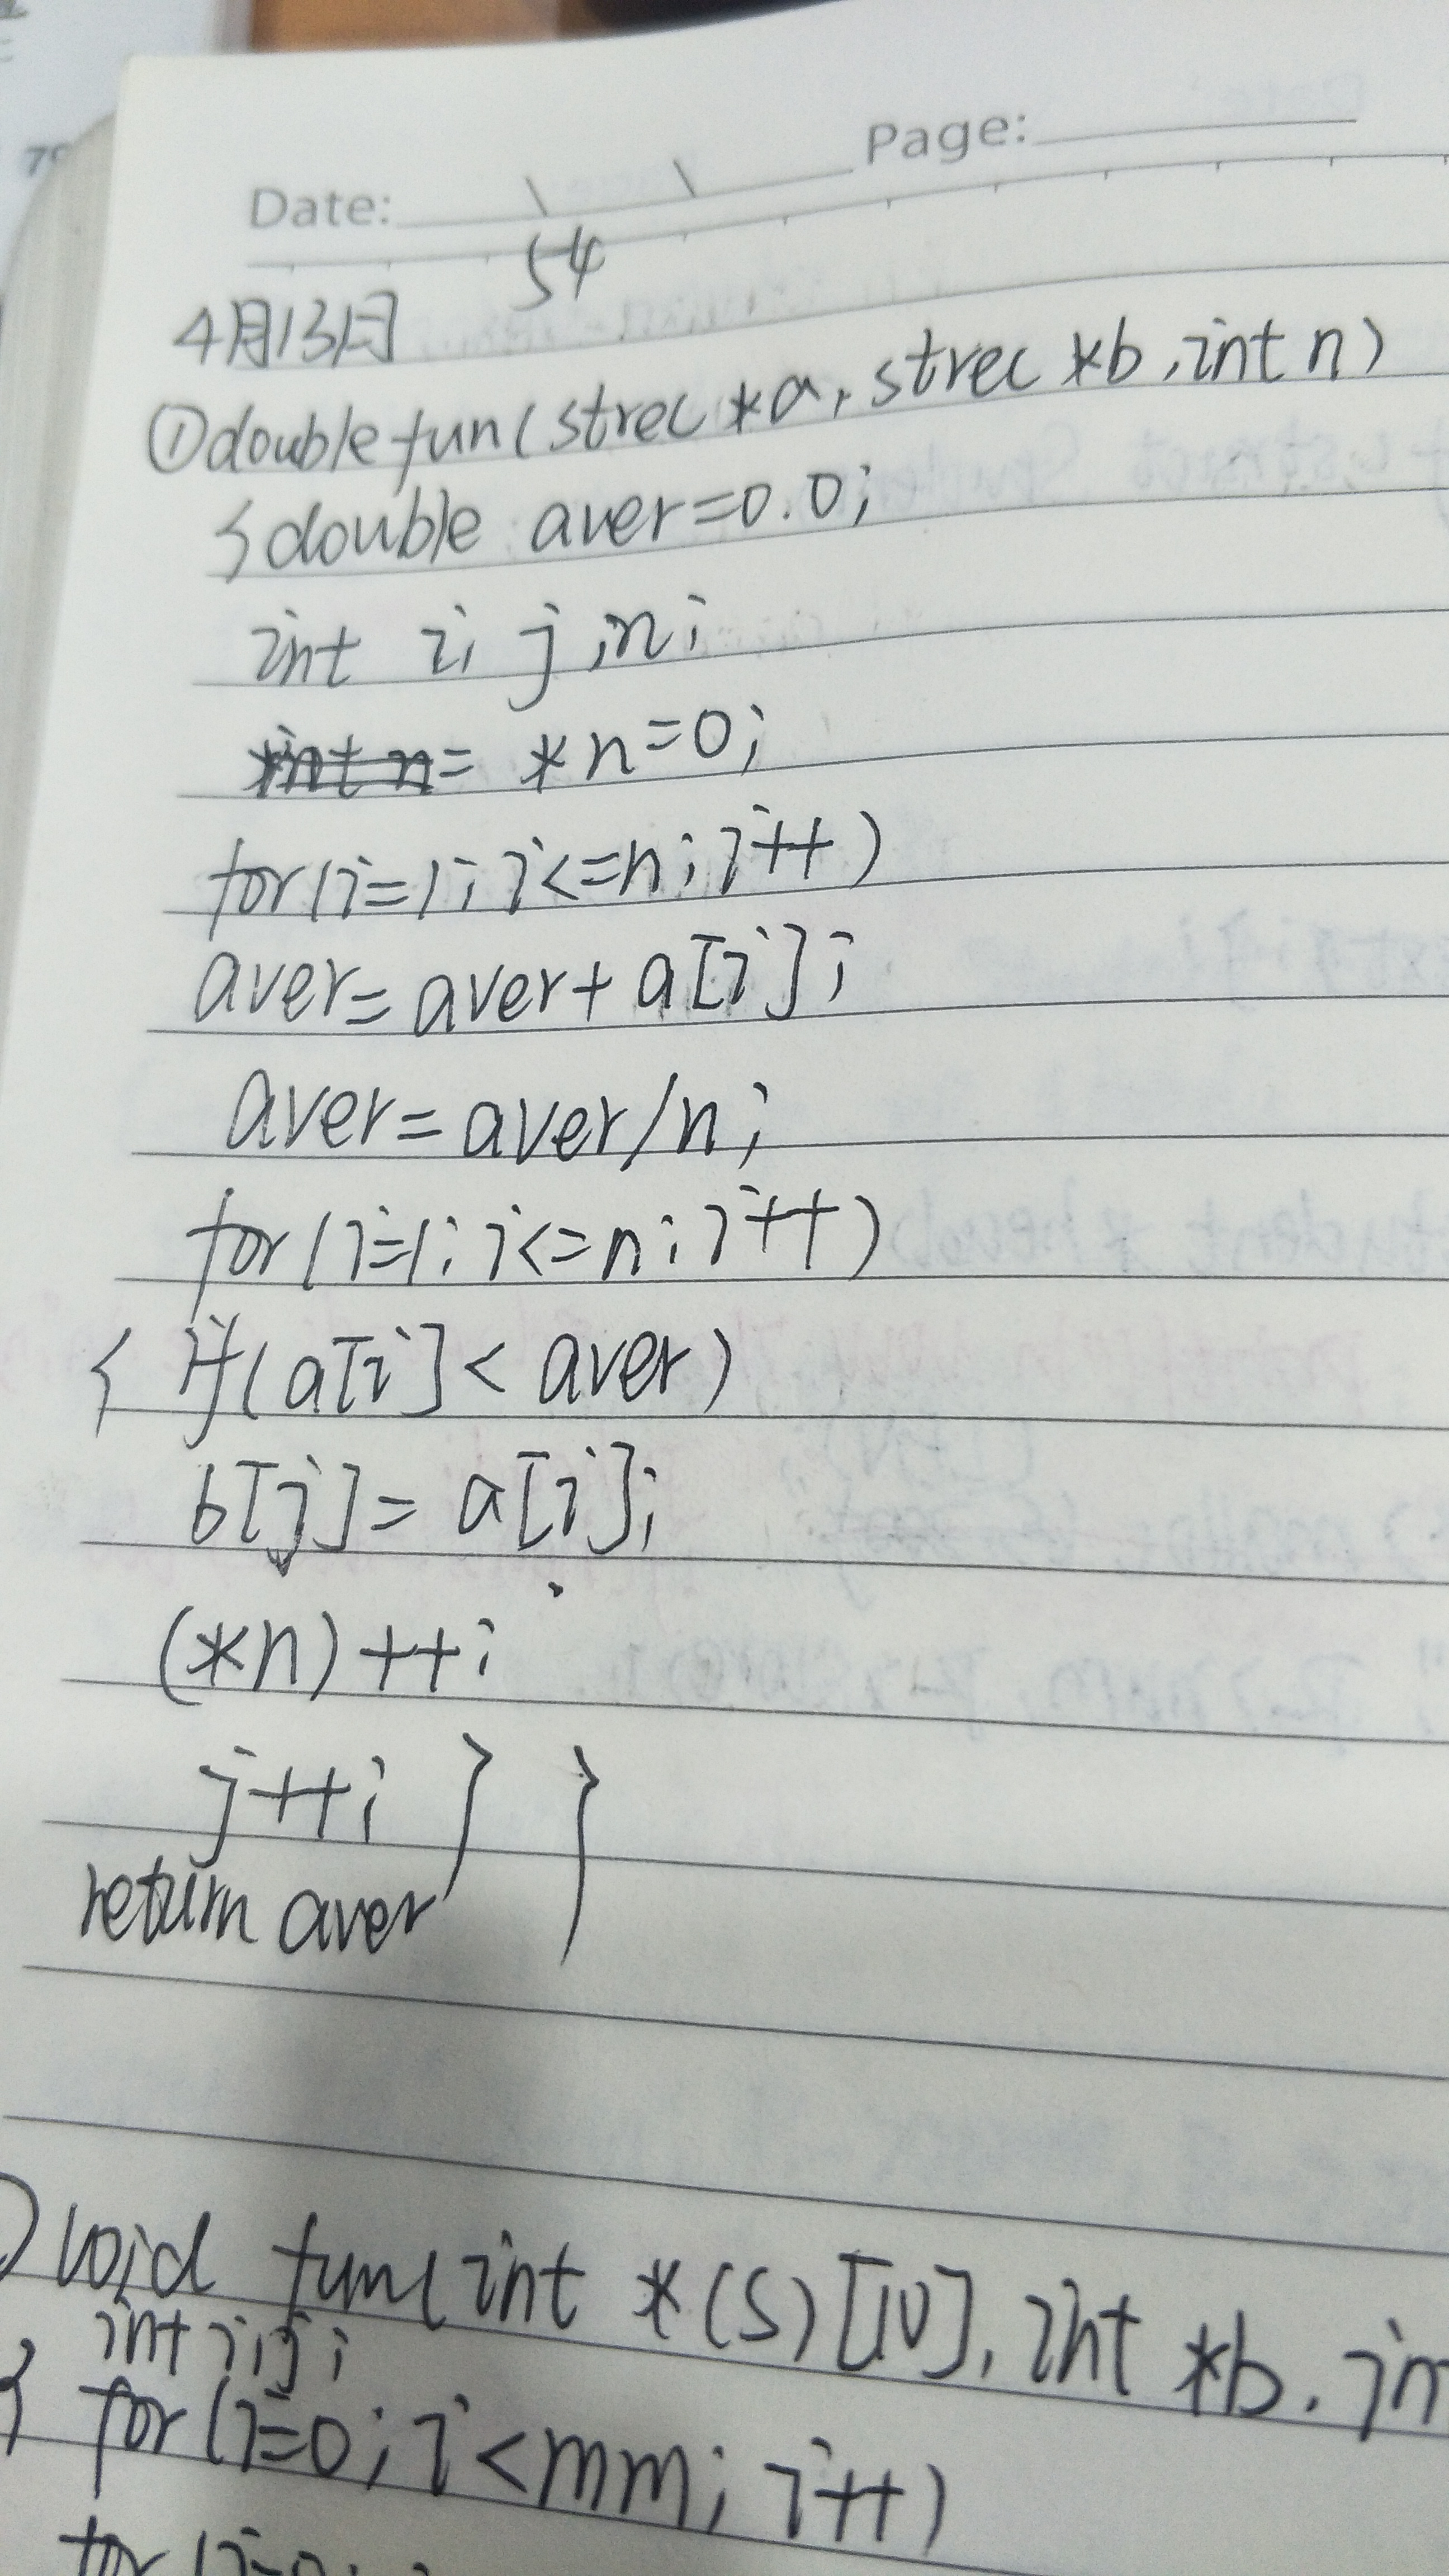 79
Page:
Date:
54
4月13日
①double fun(strec *a, strec *b, int n)
{double aver=0.0;
int i, j, n;
int n= *n=0;
for(i=1; i<=n; i++)
aver=aver+a[i];
aver=aver/n;
for(i=1; i<=n; i++)
{ if(a[i]< aver)
b[j]= a[i];
(*n)++;
j++; } }
return aver
)void fun(int *(s)[10], int *b, in
int i,j;
{ for(i=0; i<mm; i++)